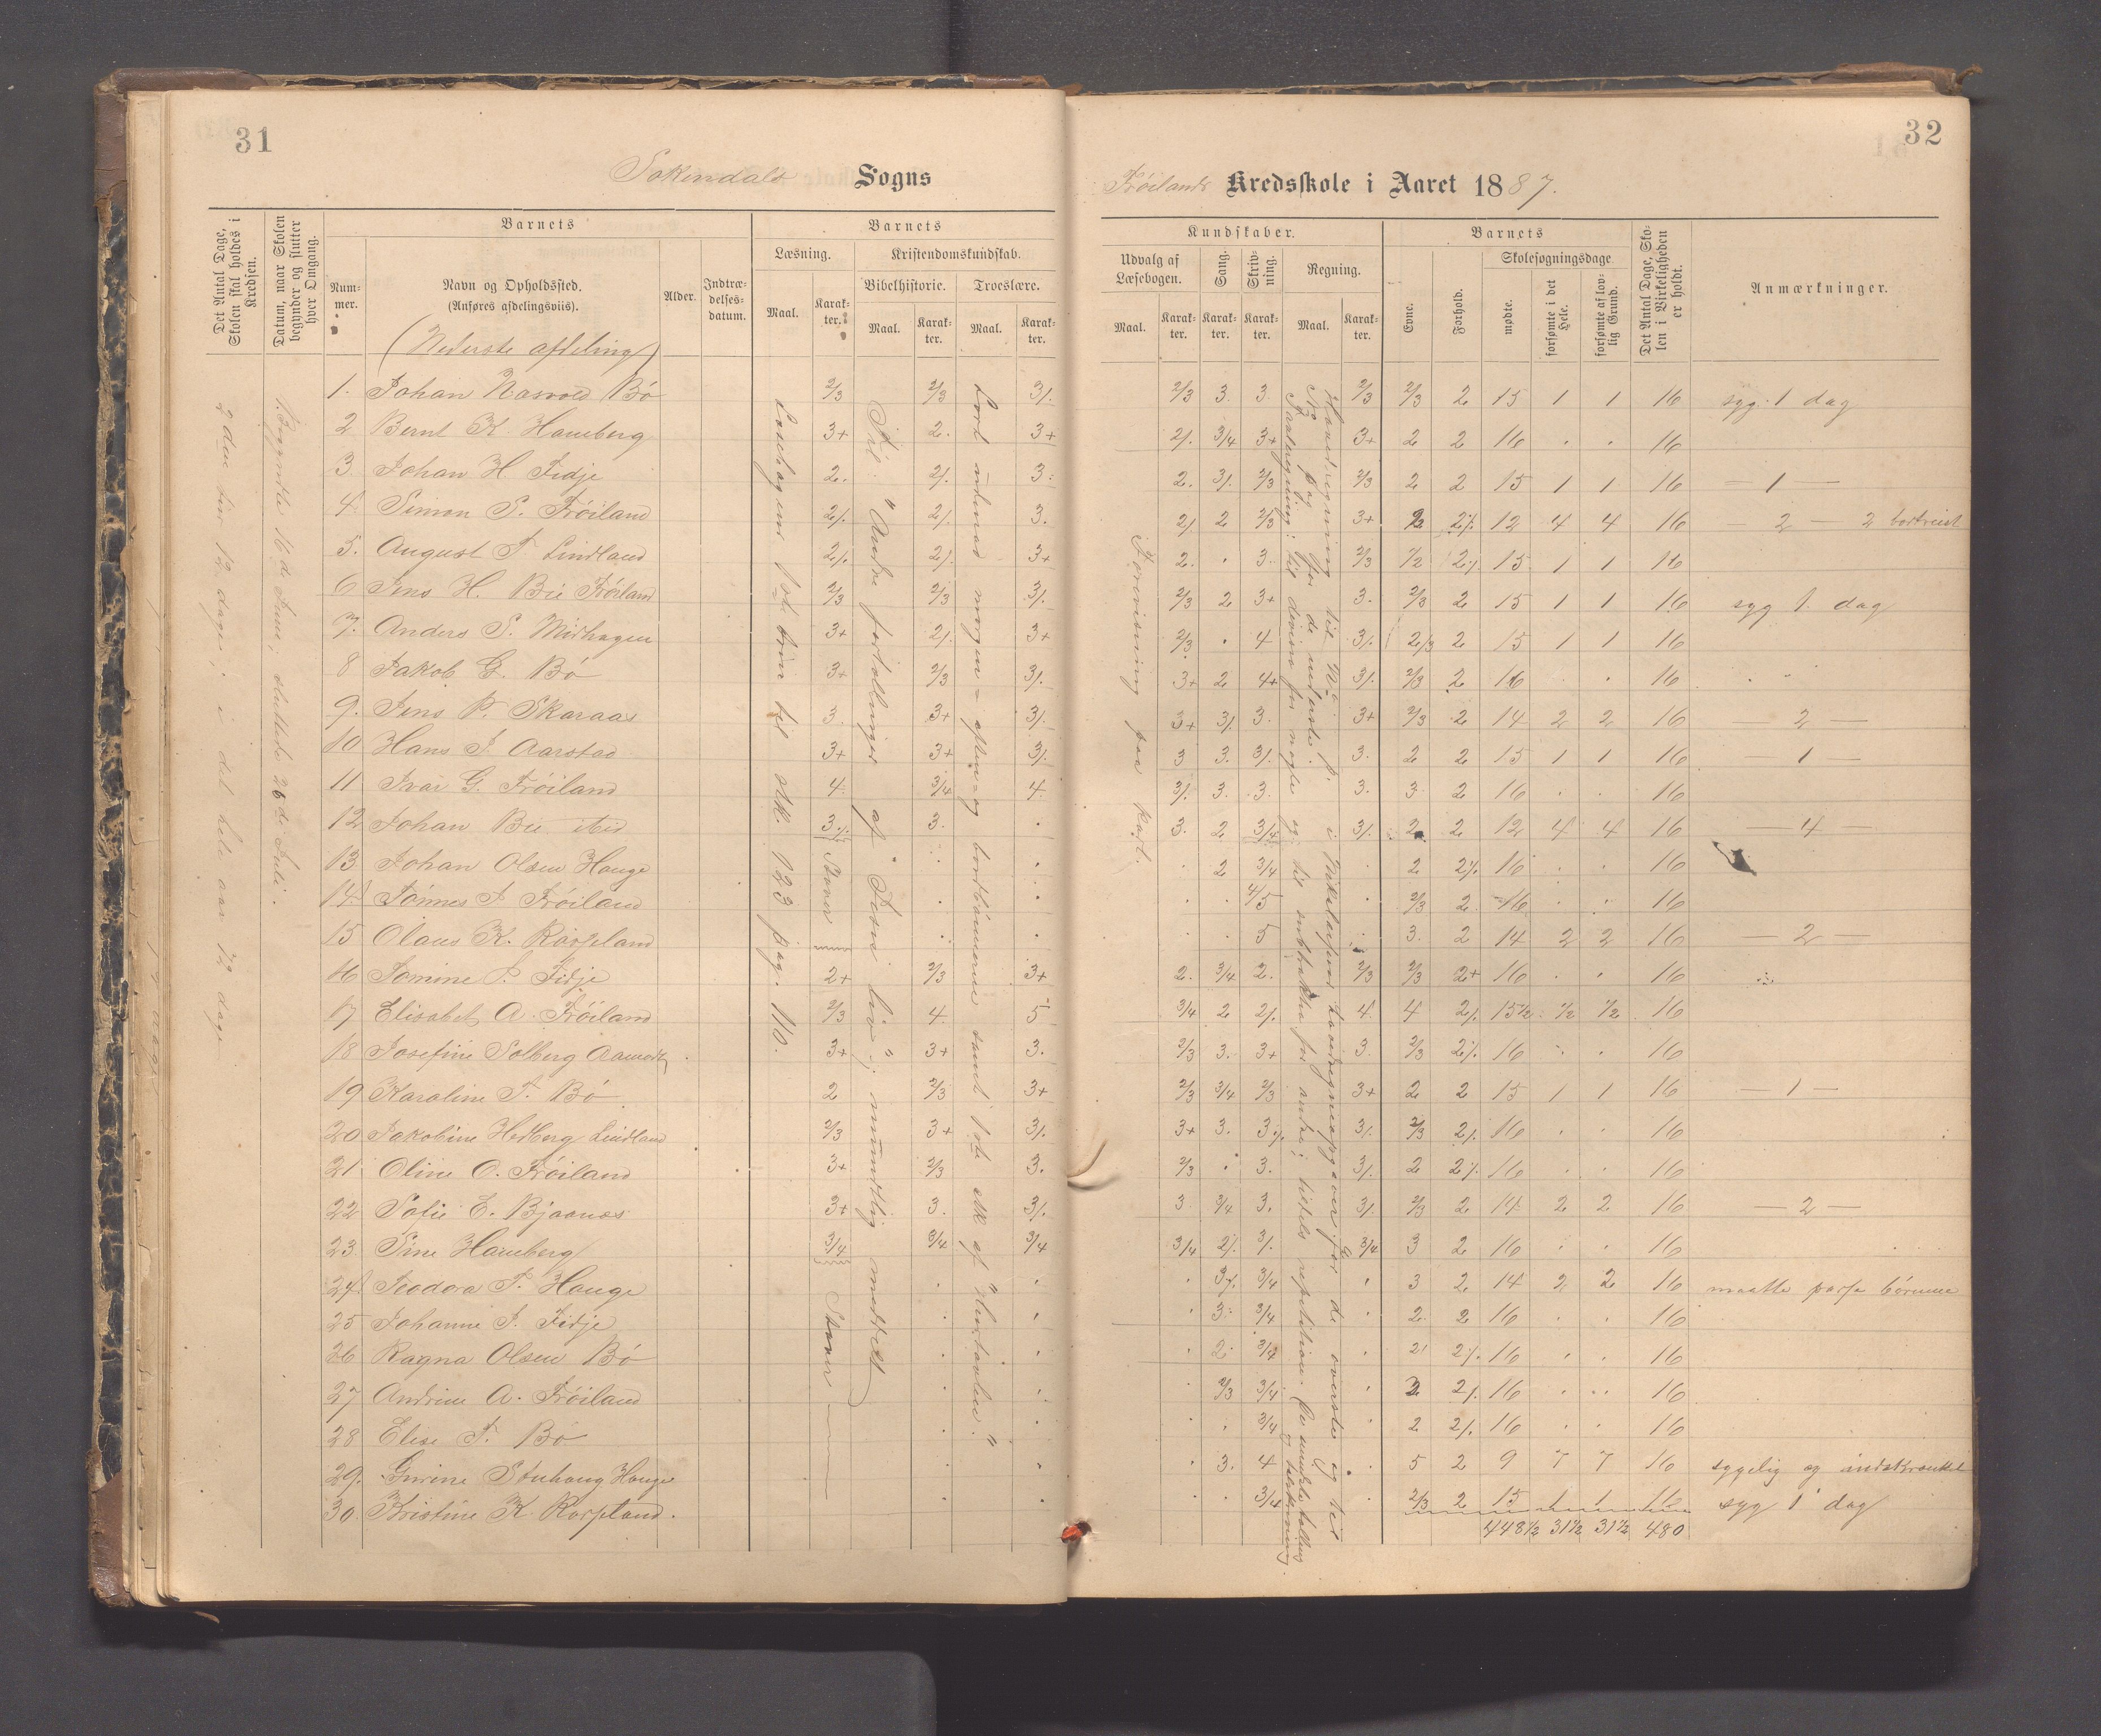 31
Sokendals Sogns
Det Antal Dage, Skolen skal holdes i Kredsen.
Datum, naar Skolen begynder og slutter hver Omgang.
Barnets
Num-mer.
Navn og Opholdssted.
(Anføres afdelingsviis).
Alder.
Indtræ-delses-datum.
Barnets
Læsning.
Kristendomskundskab.
Bibelhistorie.
Troeslære.
Maal.
Karak-ter.
Maal.
Karak-ter.
Maal.
Karak-ter.
(Nederste afdeling)
1. Johan Nasvold Bö 2/3 2/3 3/.
2 Bernt K. Haneberg 3+ 2. 3+
3 Johan H. Fidje 2. 2/. 3.
4 Simon S. Fröiland 2/. 2/. 3.
5. August T. Lindland 2/. 2/. 3+
6 Jens H. Bie Fröiland 2/3 2/3 3/.
7. Anders S. Midhagen 3+ 2/. 3+
8 Jakob G. Bö 3+ 2/3 3/.
9. Jens P. Skaraas 3. 3+ 3/.
10 Hans J. Aarstad 3+ 3+ 3/.
11 Ivar G. Fröiland 4. 3/4 4.
12 Johan Bie ibid 3/. 3.
13 Johan Olsen Hauge
14 Tönnes J. Fröiland
15 Olaus K. Rörpeland
16 Tomine J. Fidje 2+ 2/3 3+
17 Elisabet A. Fröiland 2/3 4. 5
18 Josefine Solberg Aamodt 3+ 3+ 3.
19 Karoline T. Bö 2 2/3 3+
20 Jakobine Hedberg Lindland 2/3 3+ 3/.
21 Oline O. Fröiland 3+ 2/3 3.
22 Sofie E. Bjaanæs 3+ 3. 3/.
23 Sine Haneberg 3/4 3/4 3/4
24 Teodora T. Hauge
25 Johanne J. Fidje
26 Ragna Olsen Bö
27 Andrine A. Fröiland
28 Elise T. Bö
29. Gurine Hauge
30. Kristine K.
2den har 12 dage; i det hele aar 72 dage
1. Begyndte 16de Juni; sluttede 26de Juli.
Læsebogens 1ste trin til stk. 123 pag. 110.
Staver
Staver
Til "Andre fortællinger af Jesu liv"; mundtlig meddelt
Lært udenad morgen- aften- og bordbönnerne samt 1ste stk af "Hustavlen".
32
Fröilands Kredsskole i Aaret 1887.
Kundskaber.
Udvalg af Læsebogen.
Sang.
Skriv-ning.
Regning.
Maal.
Karak-ter.
Karak-ter.
Karak-ter.
Maal.
Karak-ter.
Barnets
Evne.
Forhold.
Skolesøgningsdage
mødte.
forsømte i det Hele.
forsømte af lov-lig Grund.
Det Antal Dage, Sko-len i Virkeligheden er holdt.
Anmærkninger.
2/3 3. 3. 2/3 2/3 2 15 1 1 16 syg 1 dag
2/. 3/4 3+ 3+ 2 2 16 16
2. 3/. 2/3 2/3 2 2 15 1 1 16 — 1 —
2/. 2 2/3 3+ 2 2/. 12 4 4 16 — 2 — 2 bortreist
2. 3. 2/3 1/2 2/. 15 1 1 16
2/3 2 3+ 3. 2/3 2 15 1 1 16 syg 1. dag
2/3 4 3/. 2/3 2 15 1 1 16
3+ 2 4+ 3/. 2/3 2 16 16
3+ 3/. 3. 3+ 2/3 2 14 2 2 16 — 2 —
3 3. 3/. 3. 2 2 15 1 1 16 — 1 —
3/. 3. 3. 3. 3. 2 16 16
3. 2 3/4 3/. 2 2 12 4 4 16 — 4 —
2 3/4 2 2/. 16 16
4/5 2/3 2 16 16
5 3. 2 14 2 2 16 — 2 —
2. 3/4 2. 2/3 2/3 2+ 16 16
3/4 2 2/. 4. 4 2/. 15 1/2 1/2 1/2 16
2/3 3. 3+ 3. 2/3 2/. 16 16
2/3 3/4 2/3 3+ 2 2 15 1 1 16 — 1 —
3+ 3. 3/. 3/. 2/3 2/. 16 16
2/3 3. 3/. 2 2/. 16 16
3 3/4 3. 3/. 2/3 2 14 2 2 16 — 2 —
3/4 2/. 3/. 3/4 3 2 16 16
3/. 3/4 3 2 14 2 2 16 maatte passe börnene
3. 3/4 2 2 16 16
2. 3/4 2 2/. 16 16
2/3 3/4 2 2/. 16 16
3/4 2 2/. 16 16
3. 4 5 2 9 7 7 16 sygelig og indskrænket
3/4 2/3 2 15 1 1 16 syg 1 dag
448 1/2 31 1/2 31 1/2 480
Forevisning paa kart.